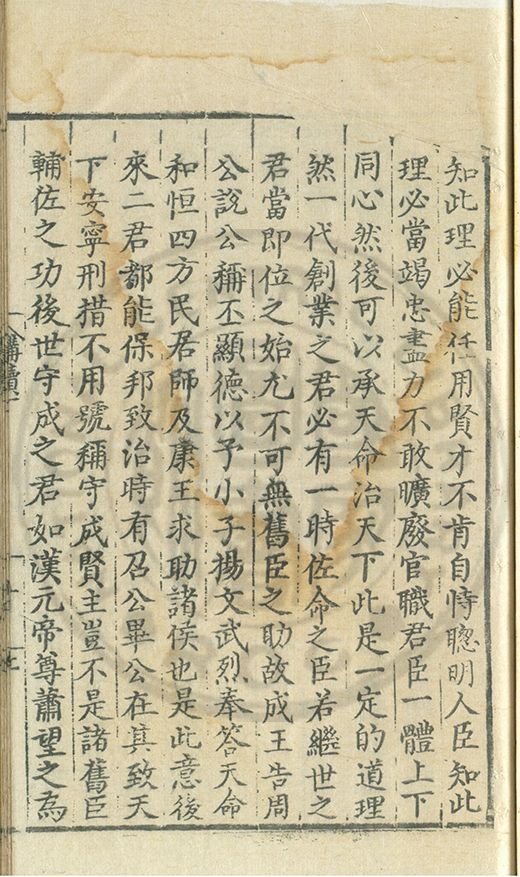 知此理必能任用賢才不肯自恃聰明人臣知此
理必當竭忠盡力不敢曠廢官職君臣一體上下
同心然後可以承天命治天下此是一定的道理
然一代創業之君必有一時佐命之臣若繼世之
君當即位之始尤不可無舊臣之助故成王告周
公說公稱丕顯德以予小子揚文武烈奉答天命
和恒四方民居師及康王求助諸侯也是此意後
來二君都能保邦致治時有召公畢公在真致天
下安寧刑措不用號稱守成賢主豈不是諸舊臣
輔佐之功後世守成之君如漢元帝尊蕭望之為